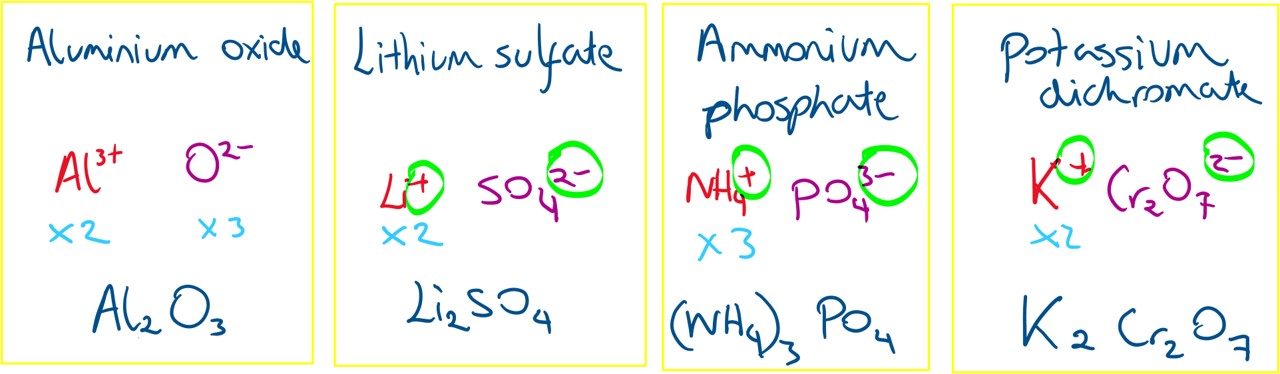 Aluminium oxide
Al³⁺ O²⁻
×2 ×3
Al₂O₃
Lithium sulfate
Li⁺ SO₄²⁻
×2
Li₂SO₄
Ammonium
phosphate
NH₄⁺ PO₄³⁻
×3
(NH₄)₃ PO₄
Potassium
dichromate
K⁺ Cr₂O₇²⁻
×2
K₂ Cr₂O₇